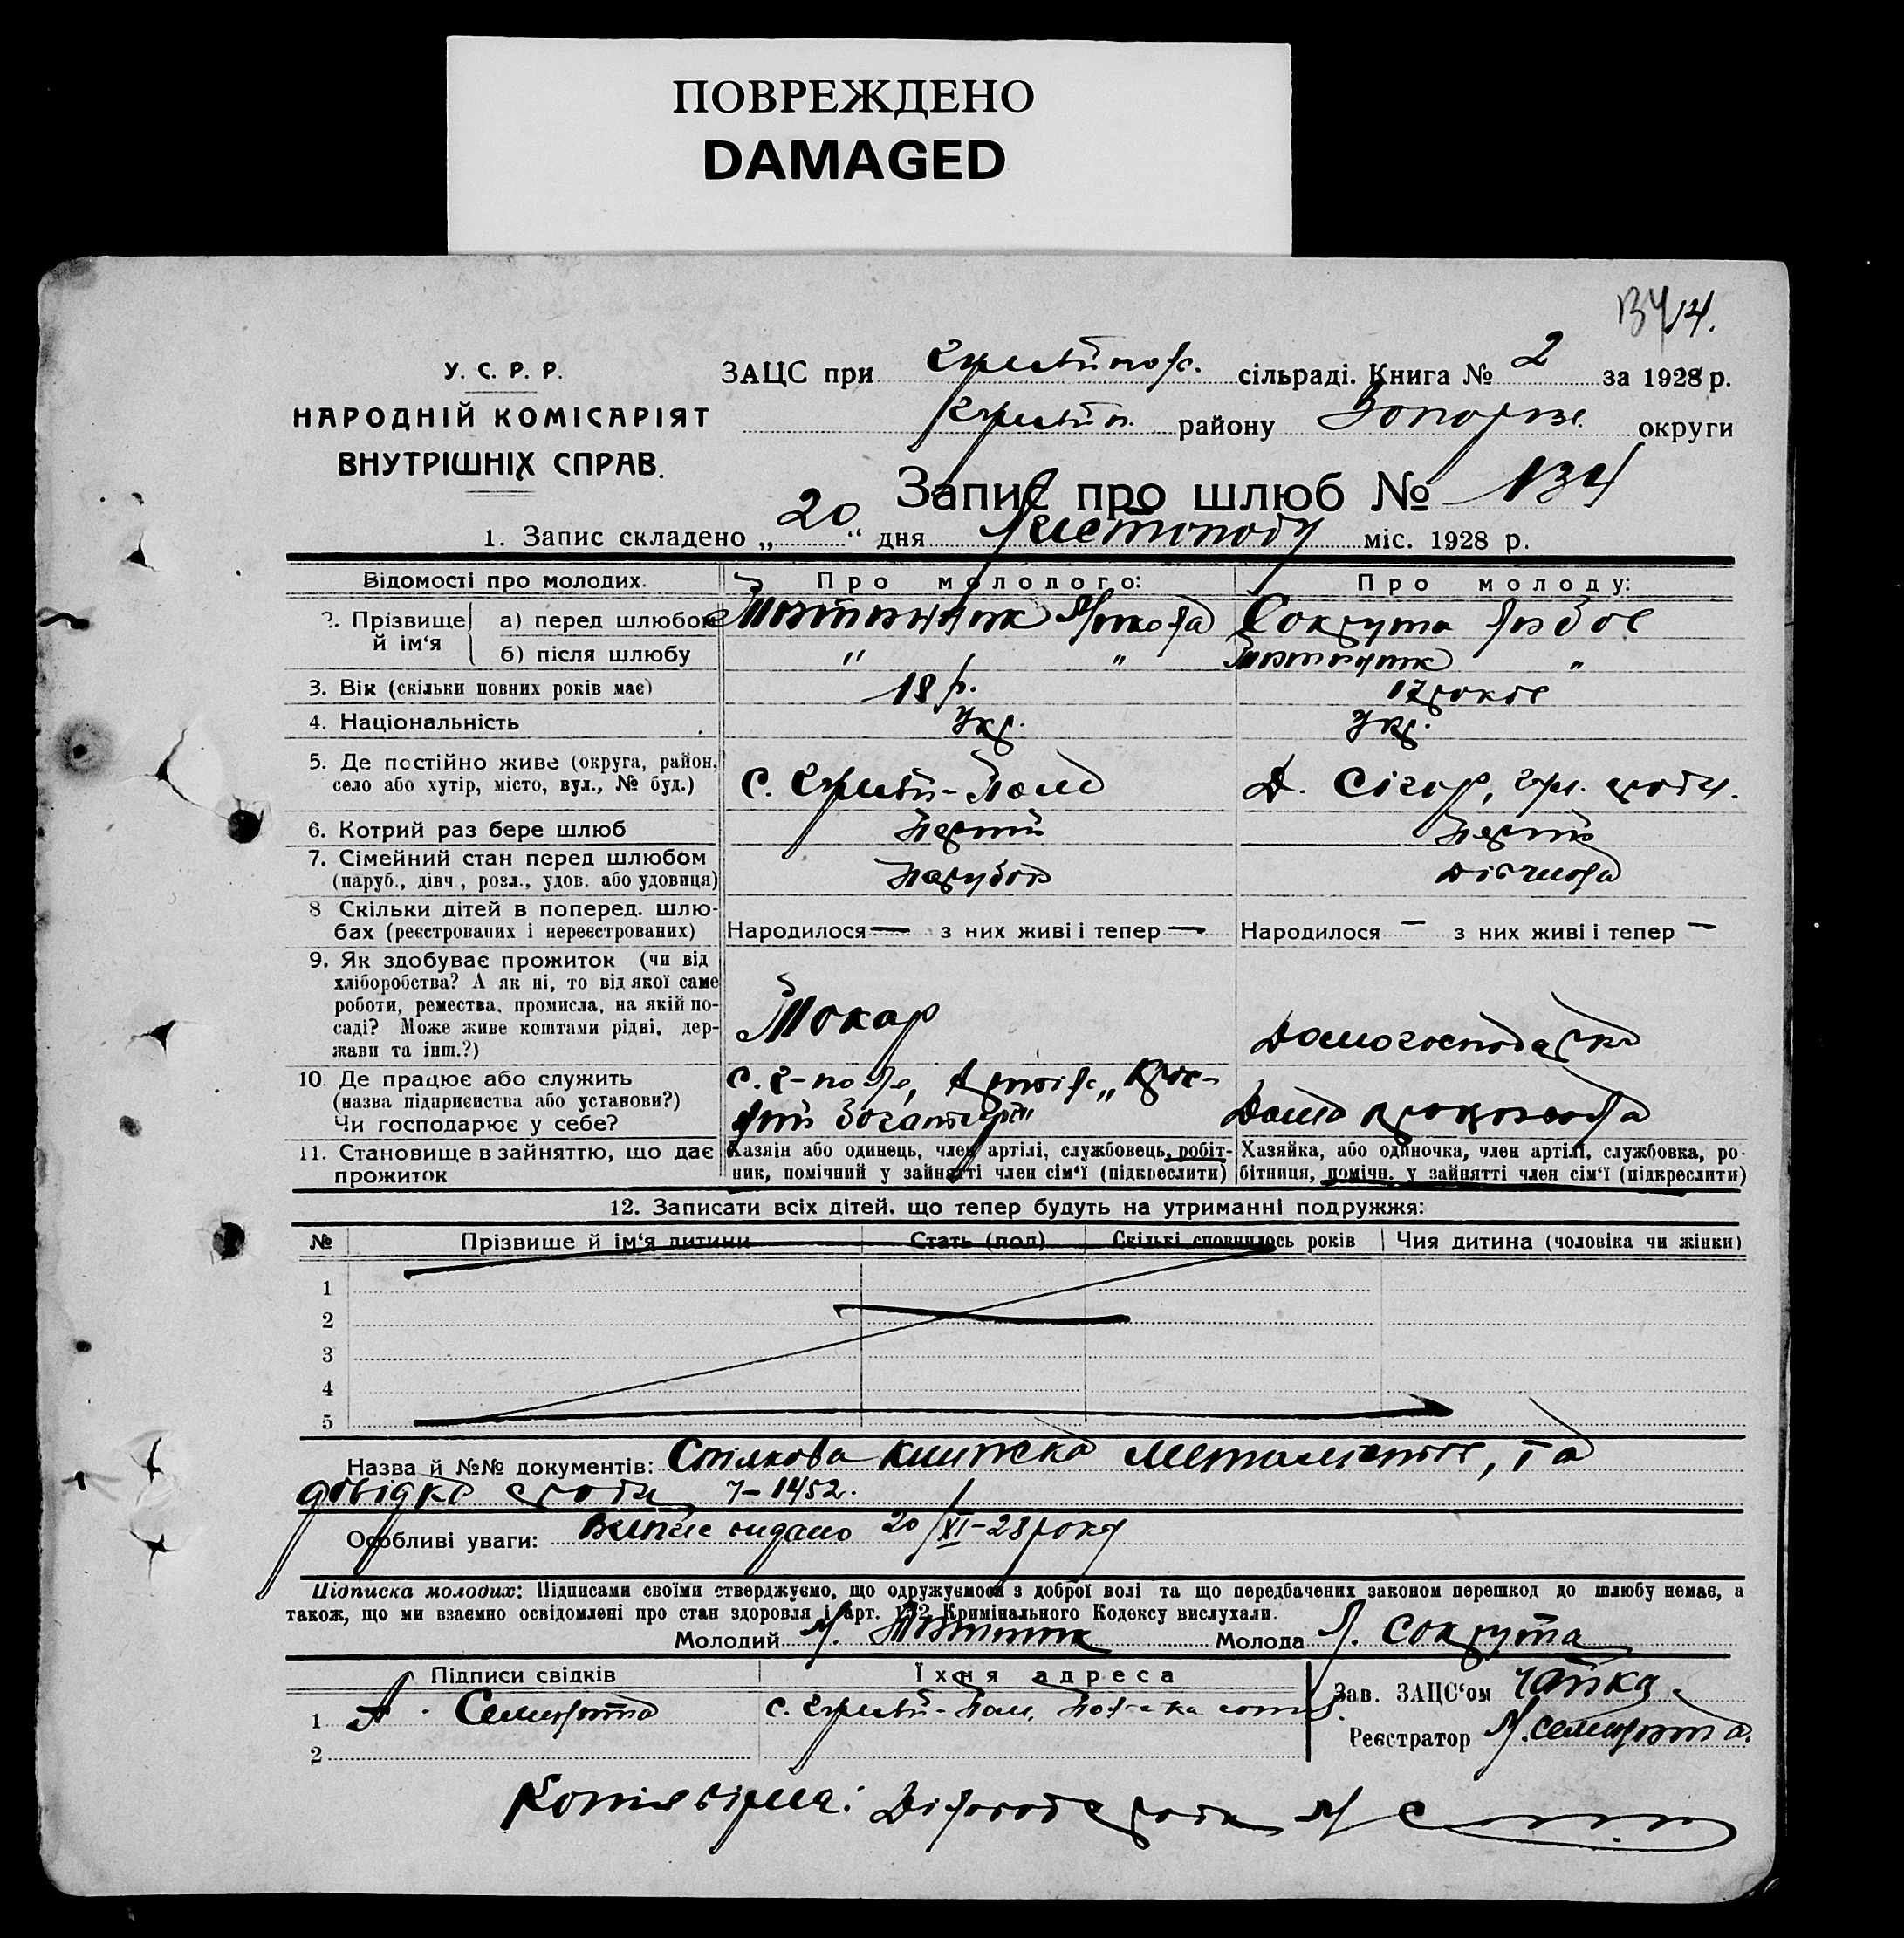 ПОВРЕЖДЕНО
DAMAGED
134 14.
У. С. Р. Р.
НАРОДНІЙ КОМІСАРІЯТ
ВНУТРІШНІХ СПРАВ.
ЗАЦС при сільраді. Книга № 2 за 1928 р.
району округи
Запис про шлюб № 134
1. Запис складено „20“ дня Листопаду міс. 1928 р.
Відомості про молодих. Про молодого: Про молоду:
2. Прізвище й ім‘я а) перед шлюбом Микола Сокрута
б) після шлюбу " " "
3. Вік (скільки повних років має) 18 р. 17 років
4. Національність Укр. Укр.
5. Де постійно живе (округа, район, село або хутір, місто, вул., № буд.) с.
6. Котрий раз бере шлюб Перший Перший
7. Сімейний стан перед шлюбом (паруб., дівч., розл., удов. або удовиця) Парубок Дівчина
8 Скільки дітей в поперед. шлю-
бах (реєстрованих і нереєстрованих) Народилося — з них живі і тепер — Народилося — з них живі і тепер —
9. Як здобуває прожиток (чи від
хліборобства? А як ні, то від якої саме
роботи, ремества, промисла, на якій по-
саді? Може живе коштами рідні, дер-
жави та інш.?) Токар Домогосподарка
10. Де працює або служить
(назва підприємства або установи?)
Чи господарює у себе?
11. Становище в зайняттю, що дає прожиток
Хазяін або одинець, член артілі, службовець, робіт-
ник, помічний у зайнятті член сім‘ї (підкреслити)
Хазяйка, або одиночка, член артілі, службовка, ро-
бітниця, помічн. у зайнятті член сім‘ї (підкреслити)
12. Записати всіх дітей, що тепер будуть на утриманні подружжя:
№ Прізвище й ім‘я дитини Стать (пол) Скількі сповнилось років Чия дитина (чоловіка чи жінки)
1
2
3
4
5
Назва й №№ документів: Спілкова книжка металістів, та
довідка с/ради 7-1452.
Особливі уваги: Витяг видано 20/XI-28 року
Підписка молодих: Підписами своїми стверджуємо, що одружуємося з доброї волі та що передбачених законом перешкод до шлюбу немає, а
також, що ми взаємно освідомлені про стан здоровля і арт. 152 Кримінального Кодексу вислухали.
Молодий М. Молода Сокрута
Підписи свідків Їхня адреса
1 А. с.
2
Зав. ЗАЦС‘ом Чайка
Реєстратор
Копія вірна: Діловод с/ради